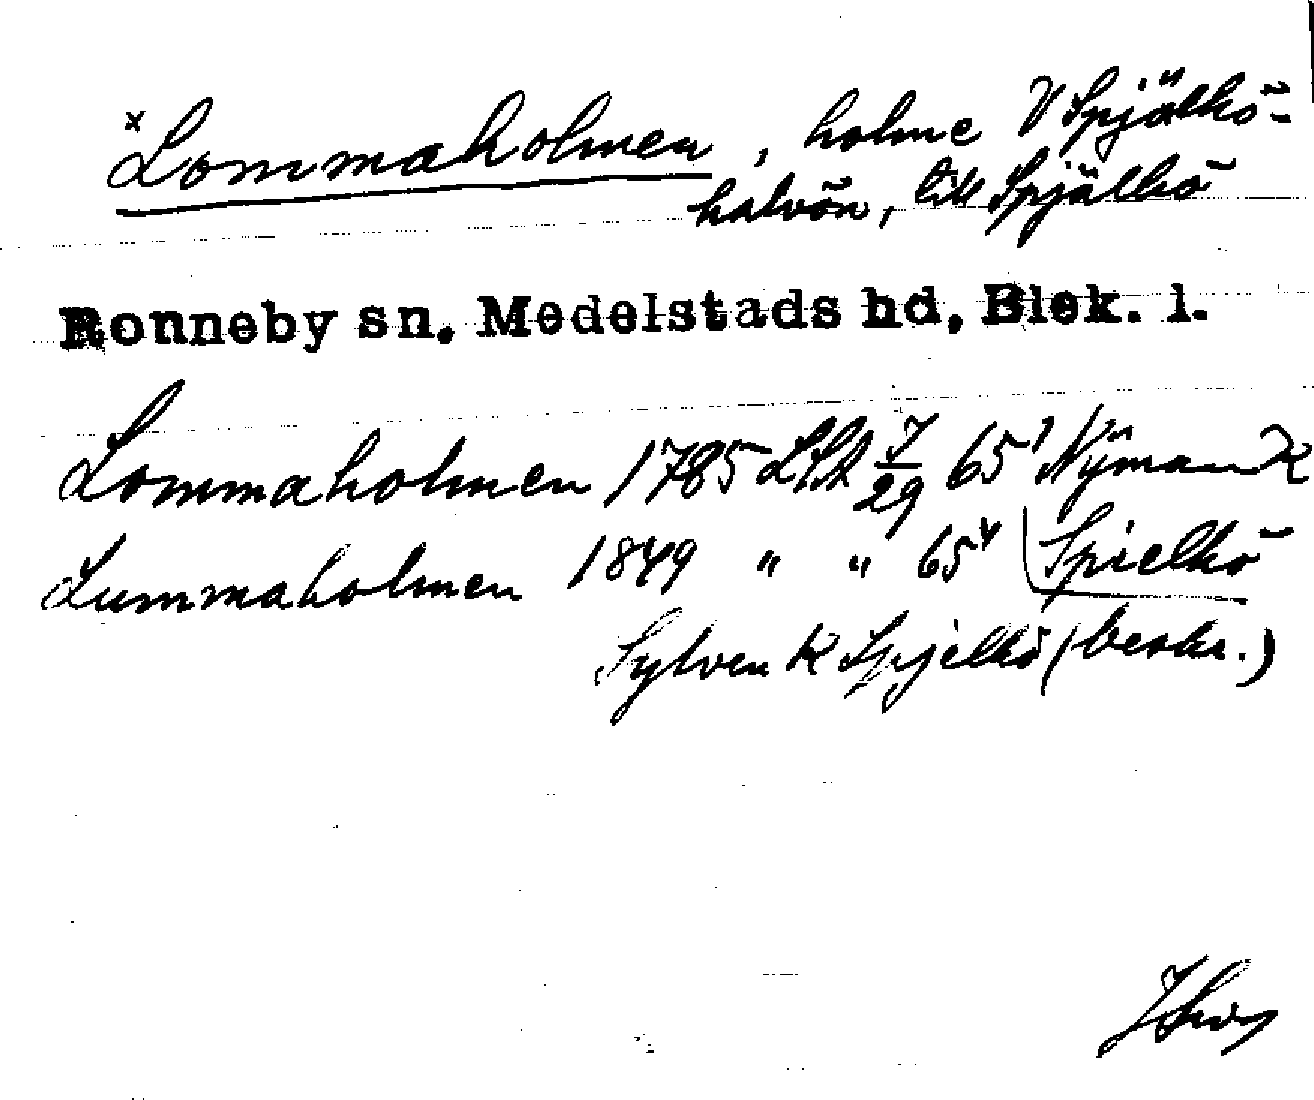 x Lommaholmen, holme V Spjälkö-
halvön, till Spjälkö
Ronneby sn. Medelstads hd, Blek. l.
Lommaholmen 1785 LSA J/29 65¹ Nÿman K
Spielkö
Lummaholmen 1849 " " 65⁴
Sylven K Spjelkö (beskr.)